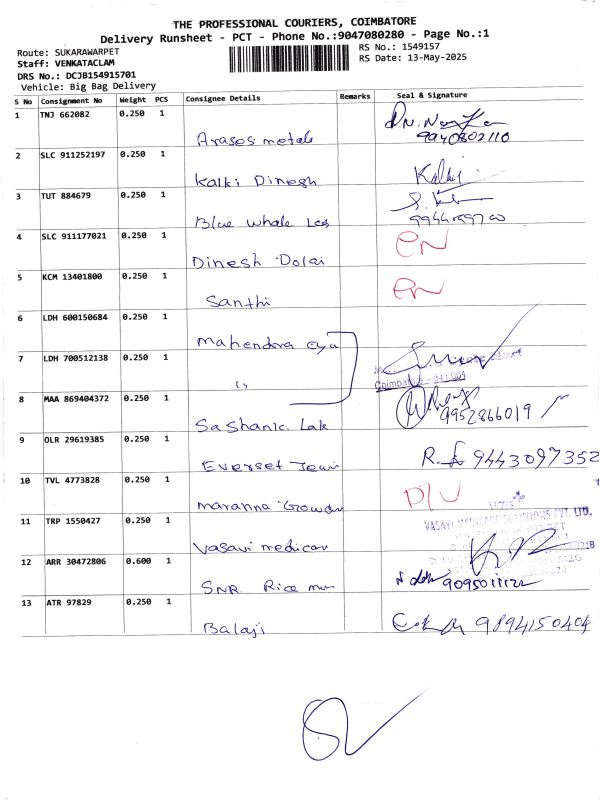 THE PROFESSIONAL COURIERS, COIMBATORE
Delivery Runsheet - PCT - Phone No.:9047080280 - Page No.:1
Route: SUKARAWARPET
RS No.: 1549157
Staff: VENKATACLAM
RS Date: 13-May-2025
DRS No.: DCJB154915701
Vehicle: Big Bag Delivery
S No Consignment No Weight PCS Consignee Details Remarks Seal & Signature
1 TNJ 662082 0.250 1
Arases metals 9940802110
2 SLC 911252197 0.250 1
Kalki Dinesh Kalki
3 TUT 884679 0.250 1
Blue Whale
4 SLC 911177021 0.250 1
Dinesh Dolai
5 KCM 13401800 0.250 1
Santhi
6 LDH 600150684 0.250 1
Mahendra
7 LDH 700512138 0.250 1
Coimbatore - 641 001
8 MAA 869404372 0.250 1
Sashank Lak 9952866019
9 OLR 29619385 0.250 1
Everset R. 9443097352
10 TVL 4773828 0.250 1
Maranna Gowdar D/U
11 TRP 1550427 0.250 1
VASAVI SOLUTIONS PVT. LTD,
Vasavi medicar
12 ARR 30472806 0.600 1
SNR Rice 9095011122
13 ATR 97829 0.250 1
Balaji 9894150404